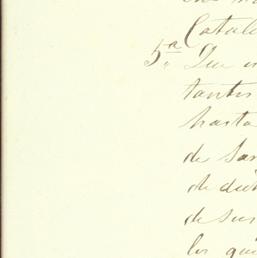 Catal
5.ª Que
tantes
hasta
de San
de dich
de sus
los qu